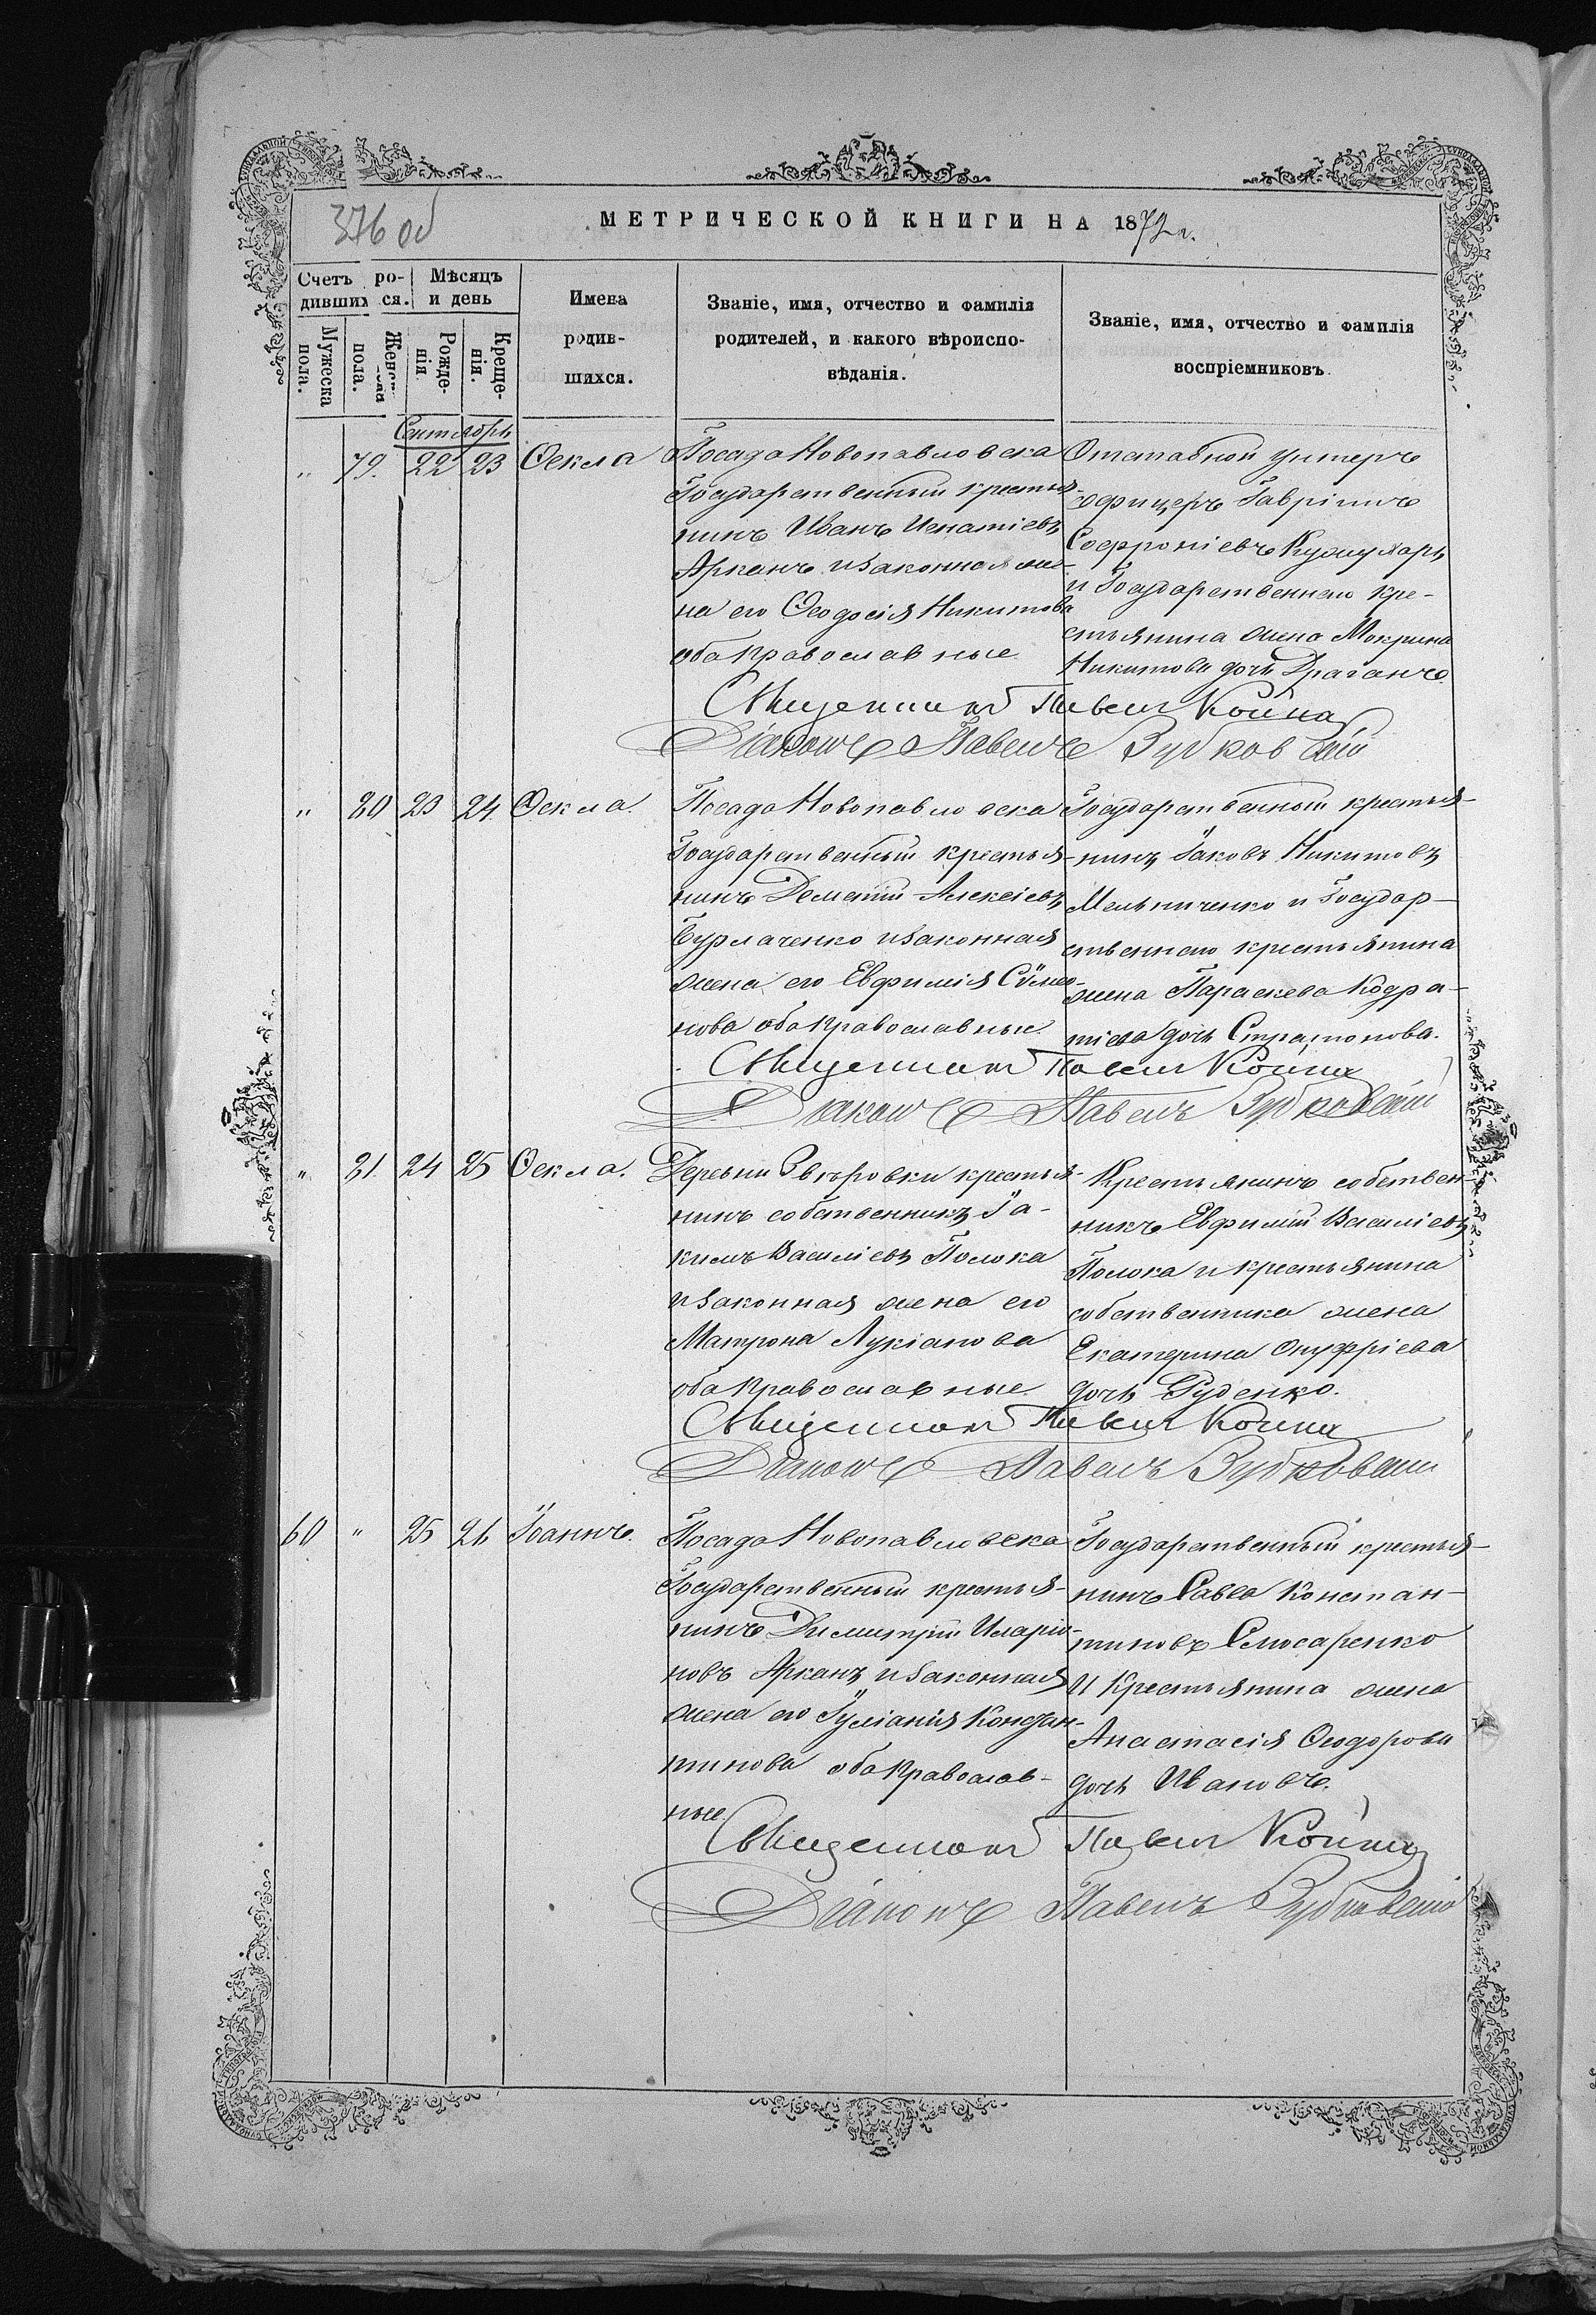 376 об
МЕТРИЧЕСКОЙ КНИГИ НА 1872 г.
Счетъ родившихся.
Мѣсяцъ и день
Имена родившихся.
Званіе, имя, отчество и фамилія родителей, и какого вѣроисповѣданія.
Званіе, имя, отчество и фамилія воспріемниковъ.
Мужеска пола.
Женска пола.
Рожденія
Крещенія.
Сентябрь
" 79. 22 23 Ѳекла
Посада Новопавловска
Государственный крестья-
нинъ Иванъ Игнатіевъ
Арканъ и законная же-
на его Ѳеодосія Никитова
оба Православные.
Отставной унтеръ
офицеръ Гавріилъ
Софроніевъ
и Государственнаго кре-
стьянина жена Мокрина
Никитова дочь Драганъ.
Священникъ Павелъ Койка
Діаконъ Павелъ Зубковскій
" 80 23 24 Ѳекла.
Посада Новопавловска
Государственный крестья-
нинъ Дементій Алексіевъ
Бурлаченко и законная
жена его Евфимія Сѵмео-
нова оба Православные.
Государственный крестья-
нинъ Іаковъ Никитовъ
Мельниченко и Государ-
ственнаго крестьянина
жена Параскева Кодра-
тіева дочь Стратонова.
Священникъ Павелъ Койка
Діаконъ Павелъ Зубковскій
" 81. 24 25 Ѳекла.
Деревни Звѣровки крестья-
нинъ собственникъ Іа-
кимъ Василіевъ Полока
и законная жена его
Матрона Лукіанова
оба Православные.
Крестьянинъ собствен-
никъ Евфимій Василіевъ
Полока и крестьянина
собственника жена
Екатерина Онуфріева
дочь Руденко.
Священникъ Павелъ Койка
Діаконъ Павелъ Зубковскій
60 " 25 26 Іоаннъ.
Посада Новопавловска
Государственный крестья-
нинъ Димитрій Иларіо-
новъ Арканъ и законная
жена его Іуліанія Констан-
тинова оба Православ-
ные.
Государственный крестья-
нинъ Савва Констан-
тиновъ Слюсаренко
и Крестьянина жена
Анастасія Ѳеодорова
дочь Ивановъ.
Священникъ Павелъ Койка
Діаконъ Павелъ Зубковскій